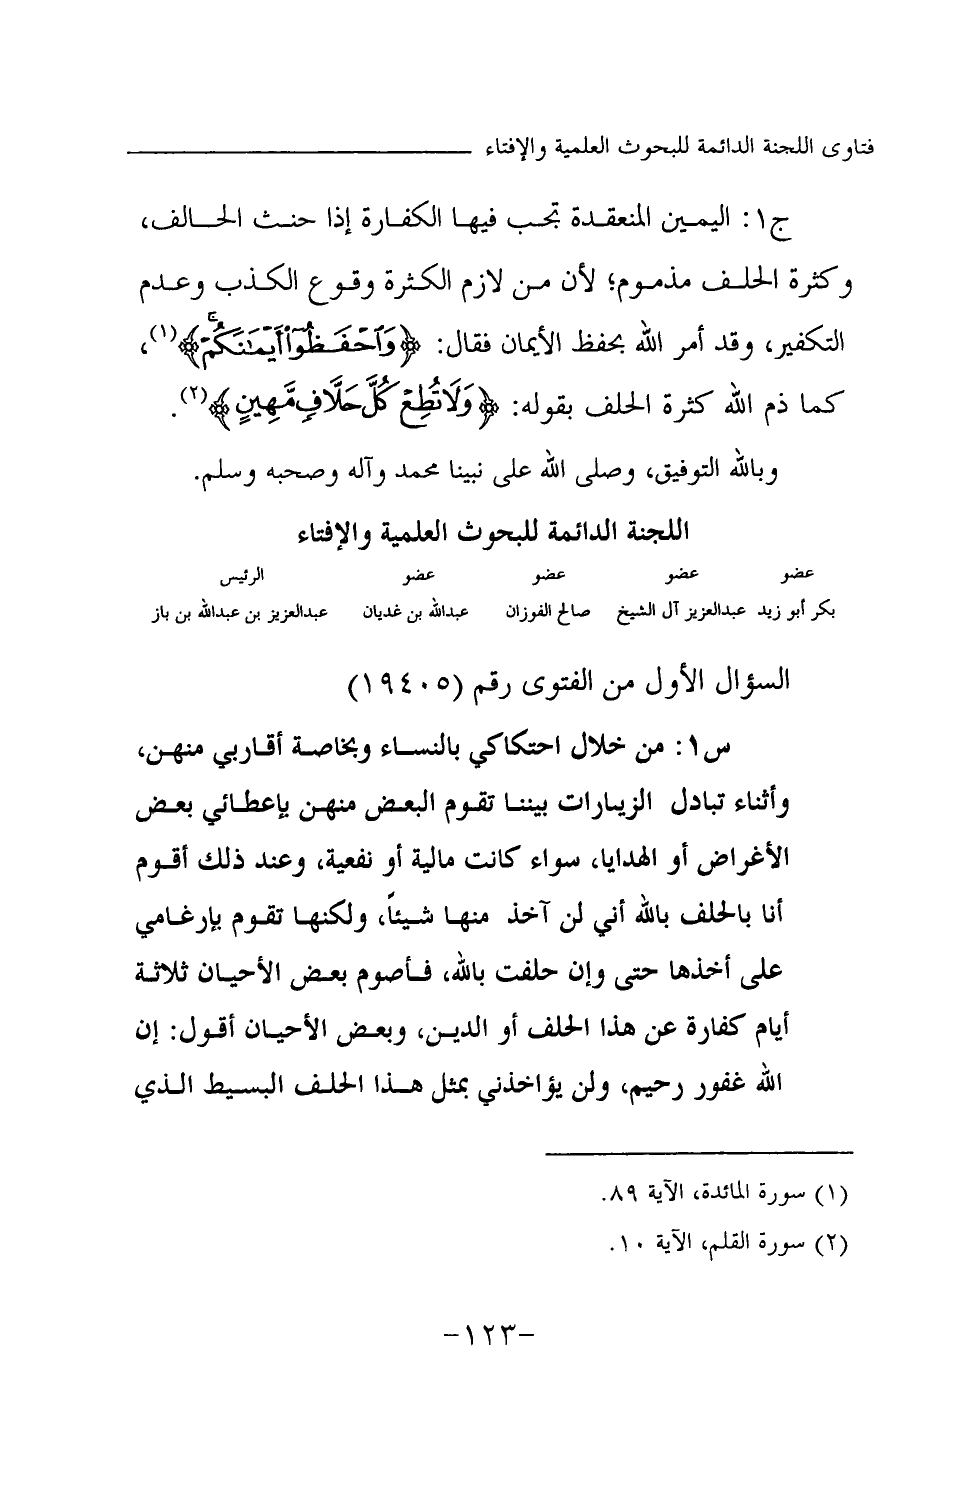 فتاوى اللجنة الدائمة للبحوث العلمية والإفتاء
ج١: اليمين المنعقدة تجب فيها الكفارة إذا حنث الحالف،
وكثرة الحلف مذموم؛ لأن من لازم الكثرة وقوع الكذب وعدم
التكفير، وقد أمر الله بحفظ الأيمان فقال: ﴿وَٱحْفَظُوٓا۟ أَيْمَـٰنَكُمْ ۚ﴾(١)،
كما ذم الله كثرة الحلف بقوله: ﴿وَلَا تُطِعْ كُلَّ حَلَّافٍ مَّهِينٍ﴾(٢).
وبالله التوفيق، وصلى الله على نبينا محمد وآله وصحبه وسلم.
اللجنة الدائمة للبحوث العلمية والإفتاء
عضو عضو عضو عضو الرئيس
بكر أبو زيد عبدالعزيز آل الشيخ صالح الفوزان عبدالله بن غديان عبدالعزيز بن عبدالله بن باز
السؤال الأول من الفتوى رقم (١٩٤٠٥)
س١: من خلال احتكاكي بالنساء وبخاصة أقاربي منهن،
وأثناء تبادل الزيارات بيننا تقوم البعض منهن بإعطائي بعض
الأغراض أو الهدايا، سواء كانت مالية أو نفعية، وعند ذلك أقوم
أنا بالحلف بالله أني لن آخذ منها شيئاً، ولكنها تقوم بإرغامي
على أخذها حتى وإن حلفت بالله، فأصوم بعض الأحيان ثلاثة
أيام كفارة عن هذا الحلف أو الدين، وبعض الأحيان أقول: إن
الله غفور رحيم، ولن يؤاخذني بمثل هذا الحلف البسيط الذي
(١) سورة المائدة، الآية ٨٩.
(٢) سورة القلم، الآية ١٠.
-١٢٣-